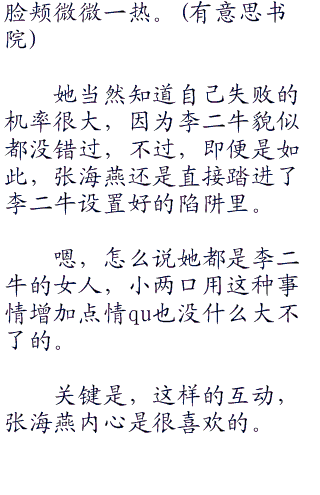 脸颊微微一热。(有意思书
院)
她当然知道自己失败的
机率很大，因为李二牛貌似
都没错过，不过，即便是如
此，张海燕还是直接踏进了
李二牛设置好的陷阱里。
嗯，怎么说她都是李二
牛的女人，小两口用这种事
情增加点情qu也没什么大不
了的。
关键是，这样的互动，
张海燕内心是很喜欢的。